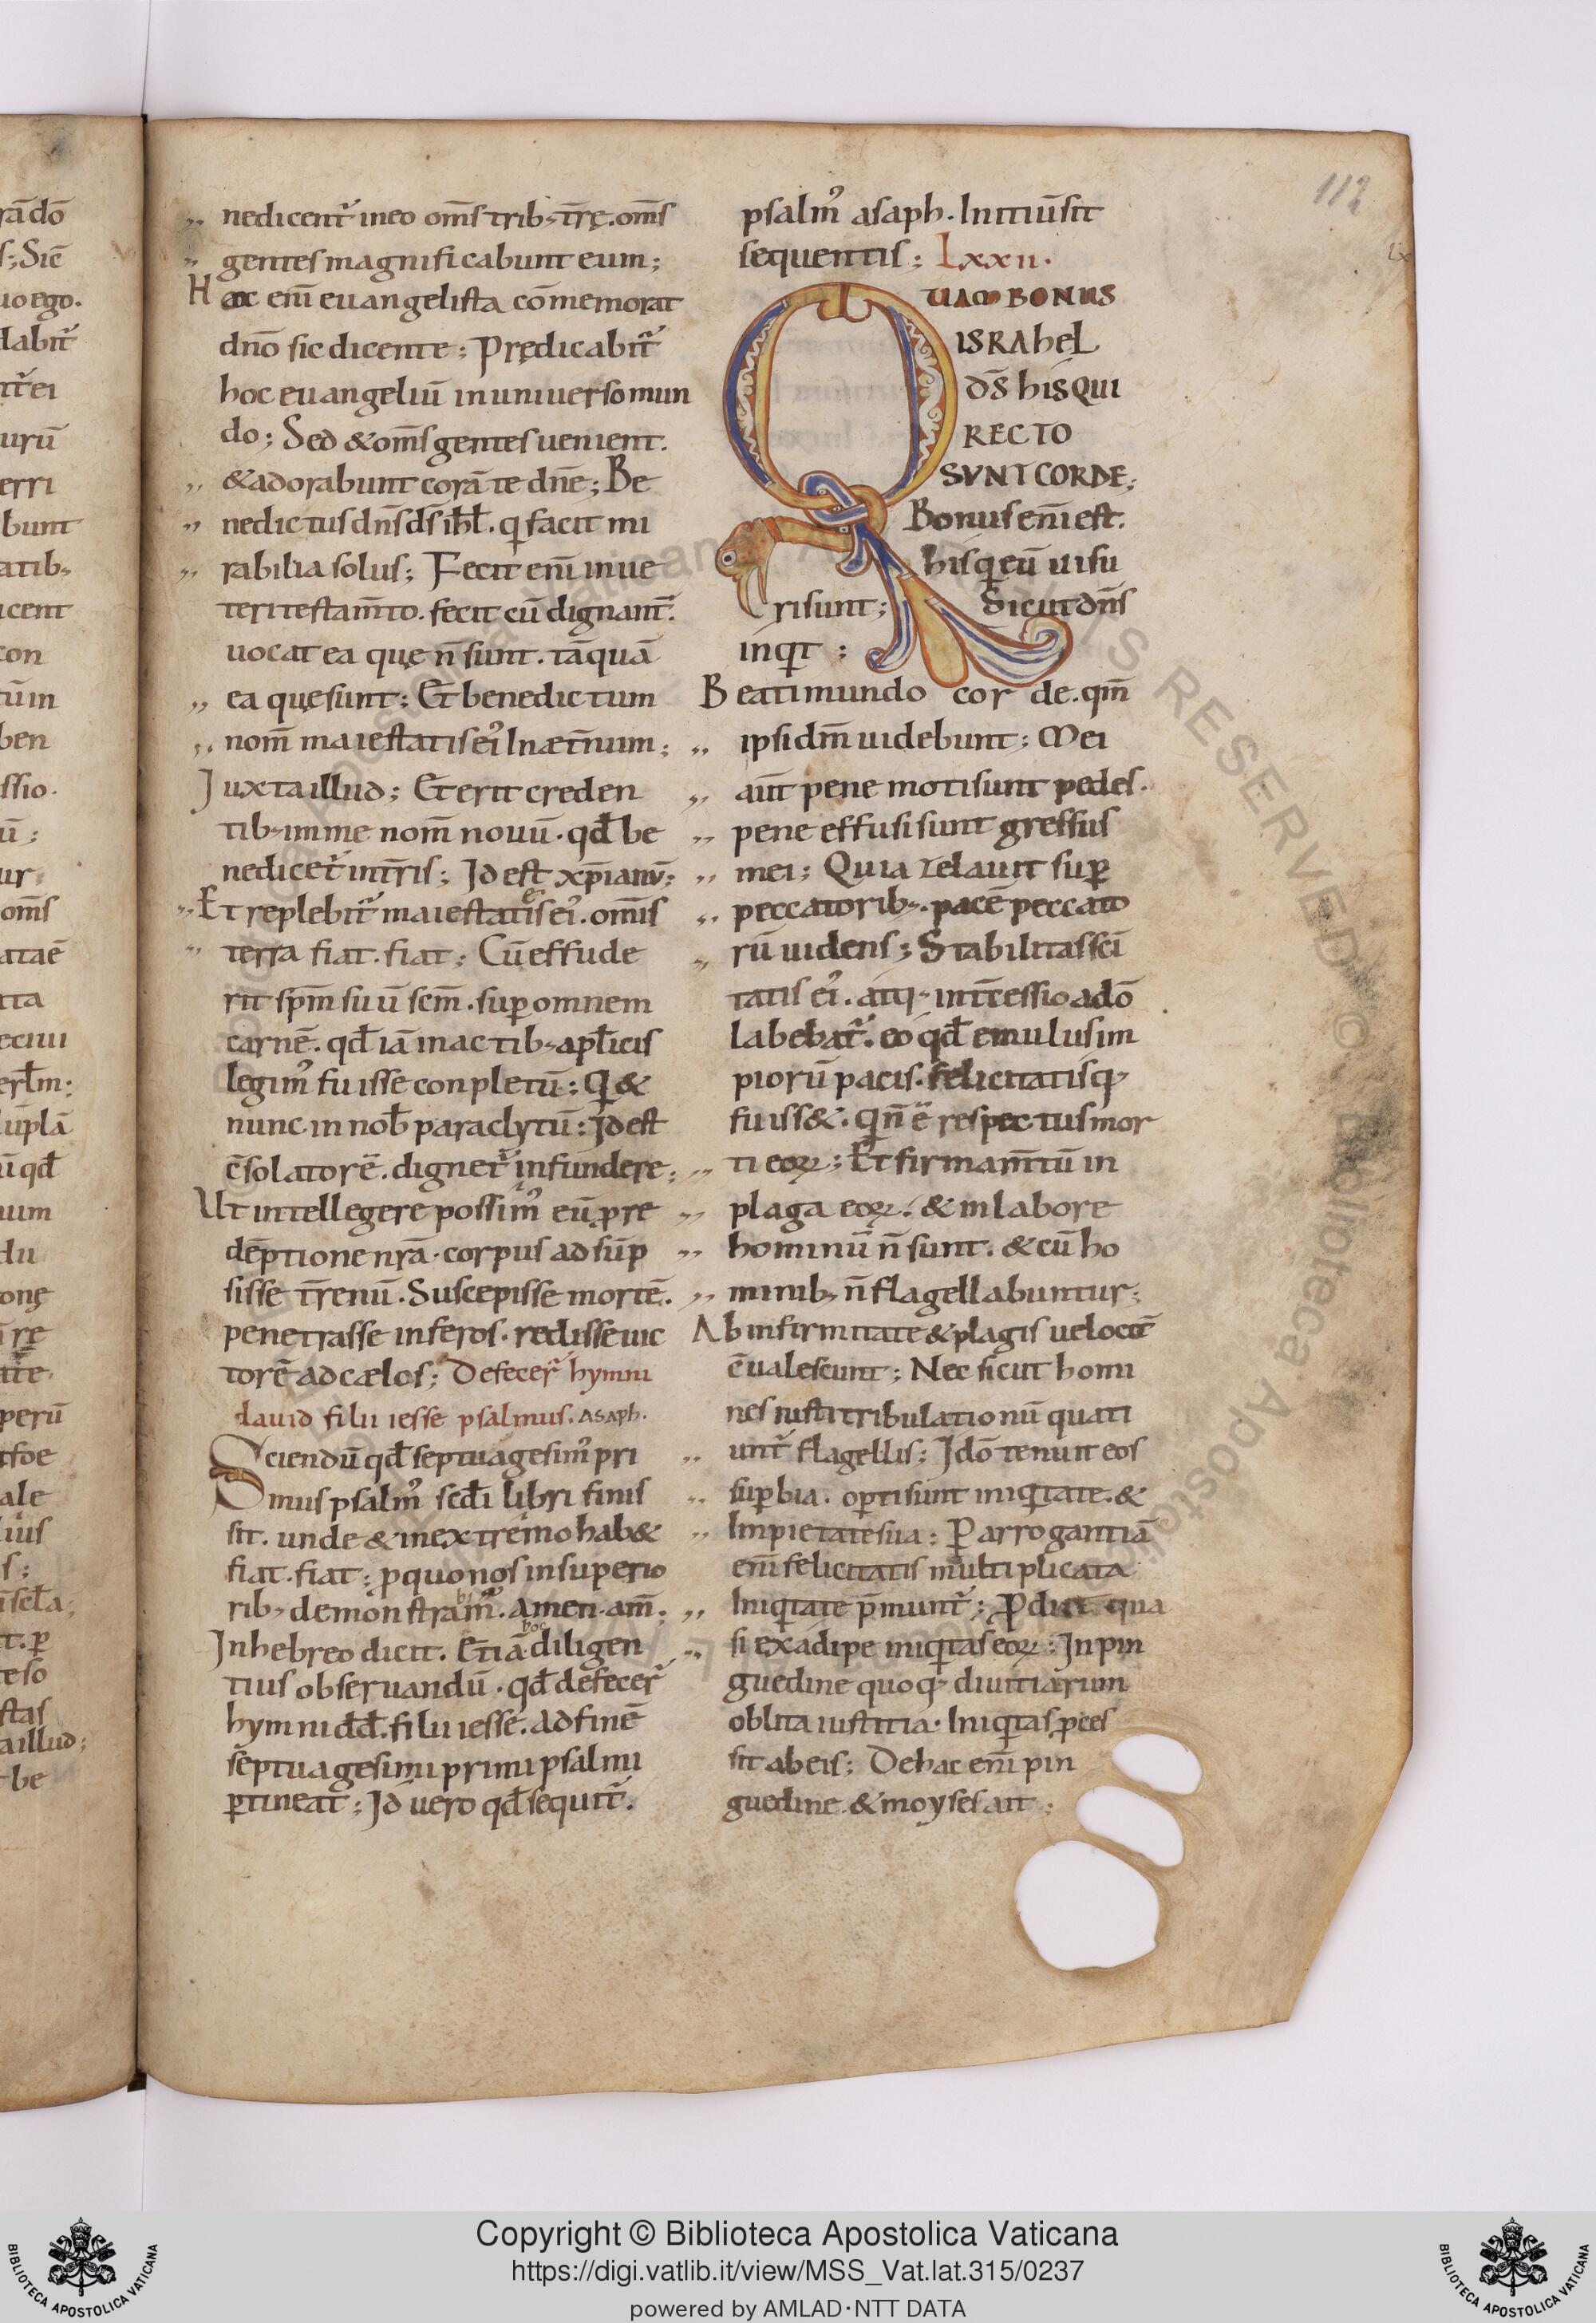 112
nedicent᷑ ineo om̅s trib; tr̅ę. om̅s
gentes magnificabunt eum;
Hoc eni̅ euangelista co̅memorat
dn̅o sic dicente; Prędicabit᷑
hoc euangeliu̅ inuniuerso mun
do; Sed & om̅s gentes uenient.
& adorabunt cora̅ te dn̅e; Be
nedictus dn̅s ds̅ isrł. q facit mi
rabilia solus; Fecit eni̅ inue
teri testam̅to. fecit cu̅ dignant᷑.
uocat ea quę n̅ sunt. ta̅qua̅
ea quę sunt; Et benedictum
nom̅ maiestatis ei᷒ Inæt̅num;
Juxta illud; Et erit creden
tib; imme nom̅ nouu̅. qd̅ be
nedicet᷑ int̅ris; Id est xp̅ianu̅;
Et replebit᷑ maiestatis ei᷒. omnis
terra fiat. fiat; Cu̅ effude
rit sp̅m suu̅ sc̅m. sup omnem
carne̅. qd̅ ia̅ inactib; apl̅icis
legim᷒ fuisse conpletu̅; Q &
nunc in nob̅ paraclytu̅; Id est
c̅solatore̅. dignet᷑ infundere;
Ut intellegere possim᷒ eu̅ p re
de̅ptione nr̅a. corpus adsu̅p
sisse t̅renu̅. Suscepisse morte̅.
penetrasse inferos. redisse uic
tore̅ ad cælos; Defecer᷑ hymni
dauid filii iesse psalmus. Asaph.
Sciendu̅ qd̅ septuagesim᷒ pri
mus psalm᷒ scd̅i libri finis
sit. unde & inextremo hab&
fiat. fiat; p quo nos insuperio
rib; demonstram᷒. Amen. am̅;
bi
Inhebreo dicit. Etia̅ diligen
hoc
tius obseruandu̅. qd̅ defecer᷑
hymni dd̅. filii iesse. Ad fine̅
septuagesimi primi psalmi
ptineat; Id uero qd̅ sequit᷑.
psalm᷒ asaph. Initiu̅ sit
sequentis; Lxxii.
QUAM BONUS
ISRAhEL
DS̅ hIS QUI
RECTO
SUNT CORDE;
Bonus eni̅ est.
his q eu̅ uisu
ri sunt; Sicut dn̅s
inqt;
Beati mundo corde. qm̅
ipsi dm̅ uidebunt; Mei
aut̅ pene moti sunt pedes.
pene effusi sunt gressus
mei; Quia zelauit sup
peccatorib;. pace̅ peccato
ru̅ uidens; Stabilitas sci̅
tatis ei᷒. atq; int̅cessio ado̅
labebat᷑. eo qd̅ emulus im
pioru̅ pacis. felicitatisq;
fuiss&. Q n̅ e̅ respectus mor
ti eoꝝ; Et firmam̅tu̅ in
plaga eoꝝ; & inlabore
hominu̅ n̅ sunt. & cu̅ ho
minib; n̅ flagellabuntur;
Ab infirmitate & plagis uelocit̅
c̅ualescunt; Nec sicut homi
nes iusti tribulationu̅ quati
unt᷑ flagellis; Ido̅ tenuit eos
supbia. opti sunt iniqtate. &
Impietate sua; P arrogantia̅
eni̅ felicitatis multiplicata
Iniqtate p̅munt᷑; Prodiit qua
si exadipe iniqtas eoꝝ; Inpin
guedine quoq; diuitiarum
oblita iustitia. Iniqtas pces
sit abeis; Dehac eni̅ pin
guedine. & moyses ait;
ra̅ do̅
s; Sic̅
uo ego.
dabit᷑
it᷑ ei
uru̅
erri
bunt
atib;
icent
con
tu̅ in
ben
ssio.
u̅;
ur
om̅s
atae̅
tta
eciui
erl̅m;
u̅ qd̅
uum
du
onę
peru̅
ale
lius
s;
stas
a illud;
be
BIBLIOTECA APOSTOLICA VATICANA
Copyright © Biblioteca Apostolica Vaticana
https://digi.vatlib.it/view/MSS_Vat.lat.315/0237
powered by AMLAD·NTT DATA
BIBLIOTECA APOSTOLICA VATICANA